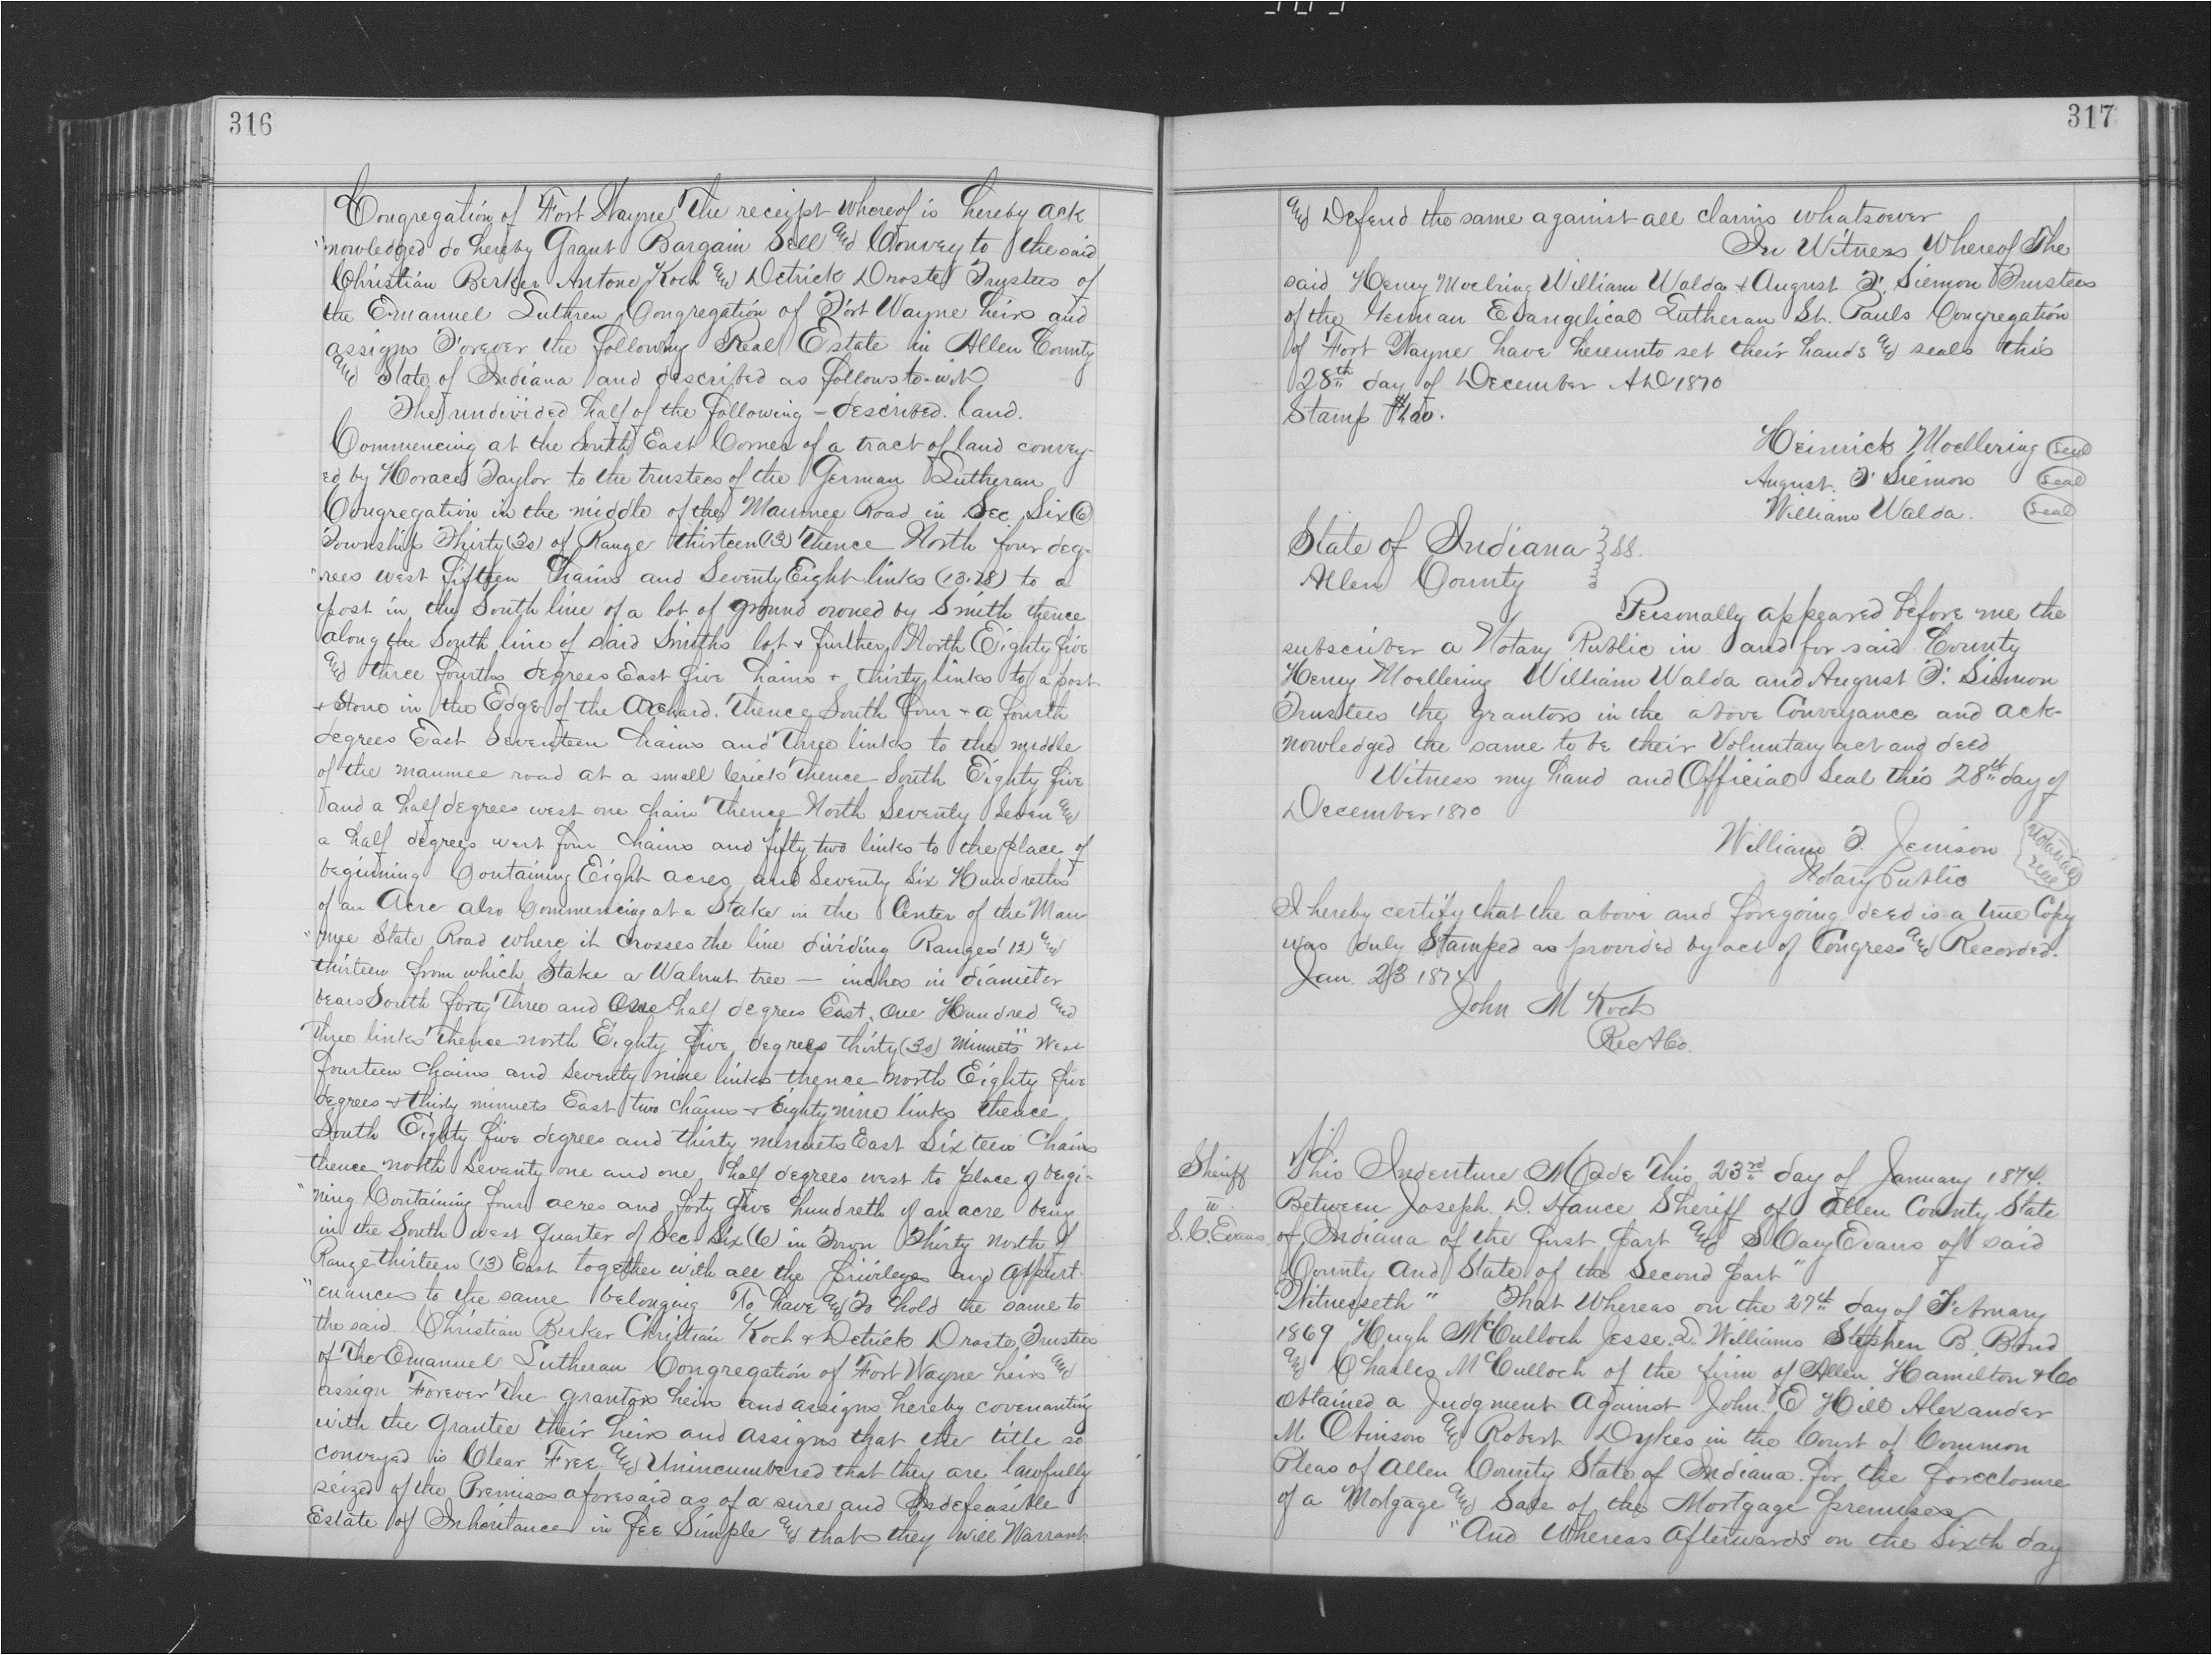 316
Congregation of Fort Wayne The receipt whereof is hereby ack
"nowledged do hereby Grant Bargain Sell and Convey to the said
Christian Berker Antone Koch and Detrick Droste Trustees of
the Emanuel Luthren Congregation of Fort Wayne heirs and
assigns Forever the following Real Estate in Allen County
and State of Indiana and described as follows to-wit
The undivided half of the following - described. land.
Commencing at the South East Corner of a tract of land convey-
ed by Horace Taylor to the trustees of the German Lutheran
Congregation in the middle of the Maumee Road in Sec. Six (6)
Township Thirty (30) of Range thirteen (13) thence North four deg-
"rees west fifteen Chains and Seventy Eight links (13.78) to a
post in the South line of a lot of ground owned by Smith thence
along the South line of said Smiths lot + further North Eighty five
and three fourths degrees East five Chains + thirty links to a post
+ Stone in the Edge of the Orchard. Thence South four + a fourth
degrees East Seventeen Chains and Three links to the middle
of the maumee road at a small brick Thence South Eighty five
and a half degrees west one chain Thence North Seventy Seven and
a half degrees west four Chains and fifty two links to the place of
beginning Containing Eight acres and Seventy Six Hundreths
of an Acre also Commencing at a Stake in the Center of the Mau
"mee State Road where it crosses the line dividing Ranges 12) and
thirteen from which Stake a Walnut tree — inches in diameter
bears South forty Three and One half degrees East. One Hundred and
Three links Thence north Eighty five degrees thirty (30) Minuets" West
fourteen Chains and Seventy nine links thence North Eighty five
degrees + thirty minuets East two Chains + Eighty nine links thence
South Eighty five degrees and thirty minuets East Sixteen Chains
thence north Seventy one and one half degrees west to place of begi-
"ning Containing four acres and forty five hundreth of an acre being
in the South west quarter of Sec. Six (6) in Town Thirty North of
Range thirteen (13) East together with all the privileges and appurt-
"enances to the same belonging To have and To hold the same to
the said. Christian Berker Christian Koch + Detrick Droste Trustees
of The Emanuel Lutheran Congregation of Fort Wayne heirs and
assign Forever The grantors heirs and assigns hereby covenanting
with the Grantee their heirs and assigns that the title so
conveyed is Clear Free. and Unincumbered that they are lawfully
seized of the Premises aforesaid as of a sure and Indefeasible
Estate of Inheritance in fee Simple and that they will Warrant
317
and Defend the same against all claims whatsoever
In Witness Whereof The
said Henry Moelring William Walda + August F. Siemon Trustees
of the German Evangelical Lutheran St. Pauls Congregation
of Fort Wayne have hereunto set their hands and seals this
28th day of December AD 1870
Stamp $1.00.
Heinrick Moellering Seal
August. F Siemon Seal
William Walda. Seal
State of Indiana } SS.
Allen County
Personally appeared before me the
subscriber a Notary Public in and for said County
Henry Moellering William Walda and August F. Siemon
Trustees the grantors in the above Conveyance and ack-
nowledged the same to be their Voluntary act and deed
Witness my hand and Official Seal this 28th day of
December 1870
William F. Jenison Notarial Seal
Notary Public
I hereby certify that the above and foregoing deed is a true Copy
was duly Stamped as provided by act of Congress and Recorded.
Jan. 23 1874
John M Koch
Rec A Co.
Sheriff
to
S. C. Evans.
This Indenture Made This 23rd day of January 1874.
Between Joseph. D. Hance Sheriff of Allen County State
of Indiana of the first part and S Cary Evans of said
County and State of the Second part"
Witnesseth" That Whereas on the 27th day of February
1869 Hugh McCulloch Jesse. L. Williams Stephen B. Bond
and Charles McCulloch of the firm of Allen Hamilton + Co
obtained a Judgment Against John. E Hill Alexander
M. Obinson and Robert Dykes in the Court of Common
Pleas of Allen County State of Indiana. for the foreclosure
of a Mortgage and Sale of the Mortgage premises
"And Whereas Afterwards on the Sixth day